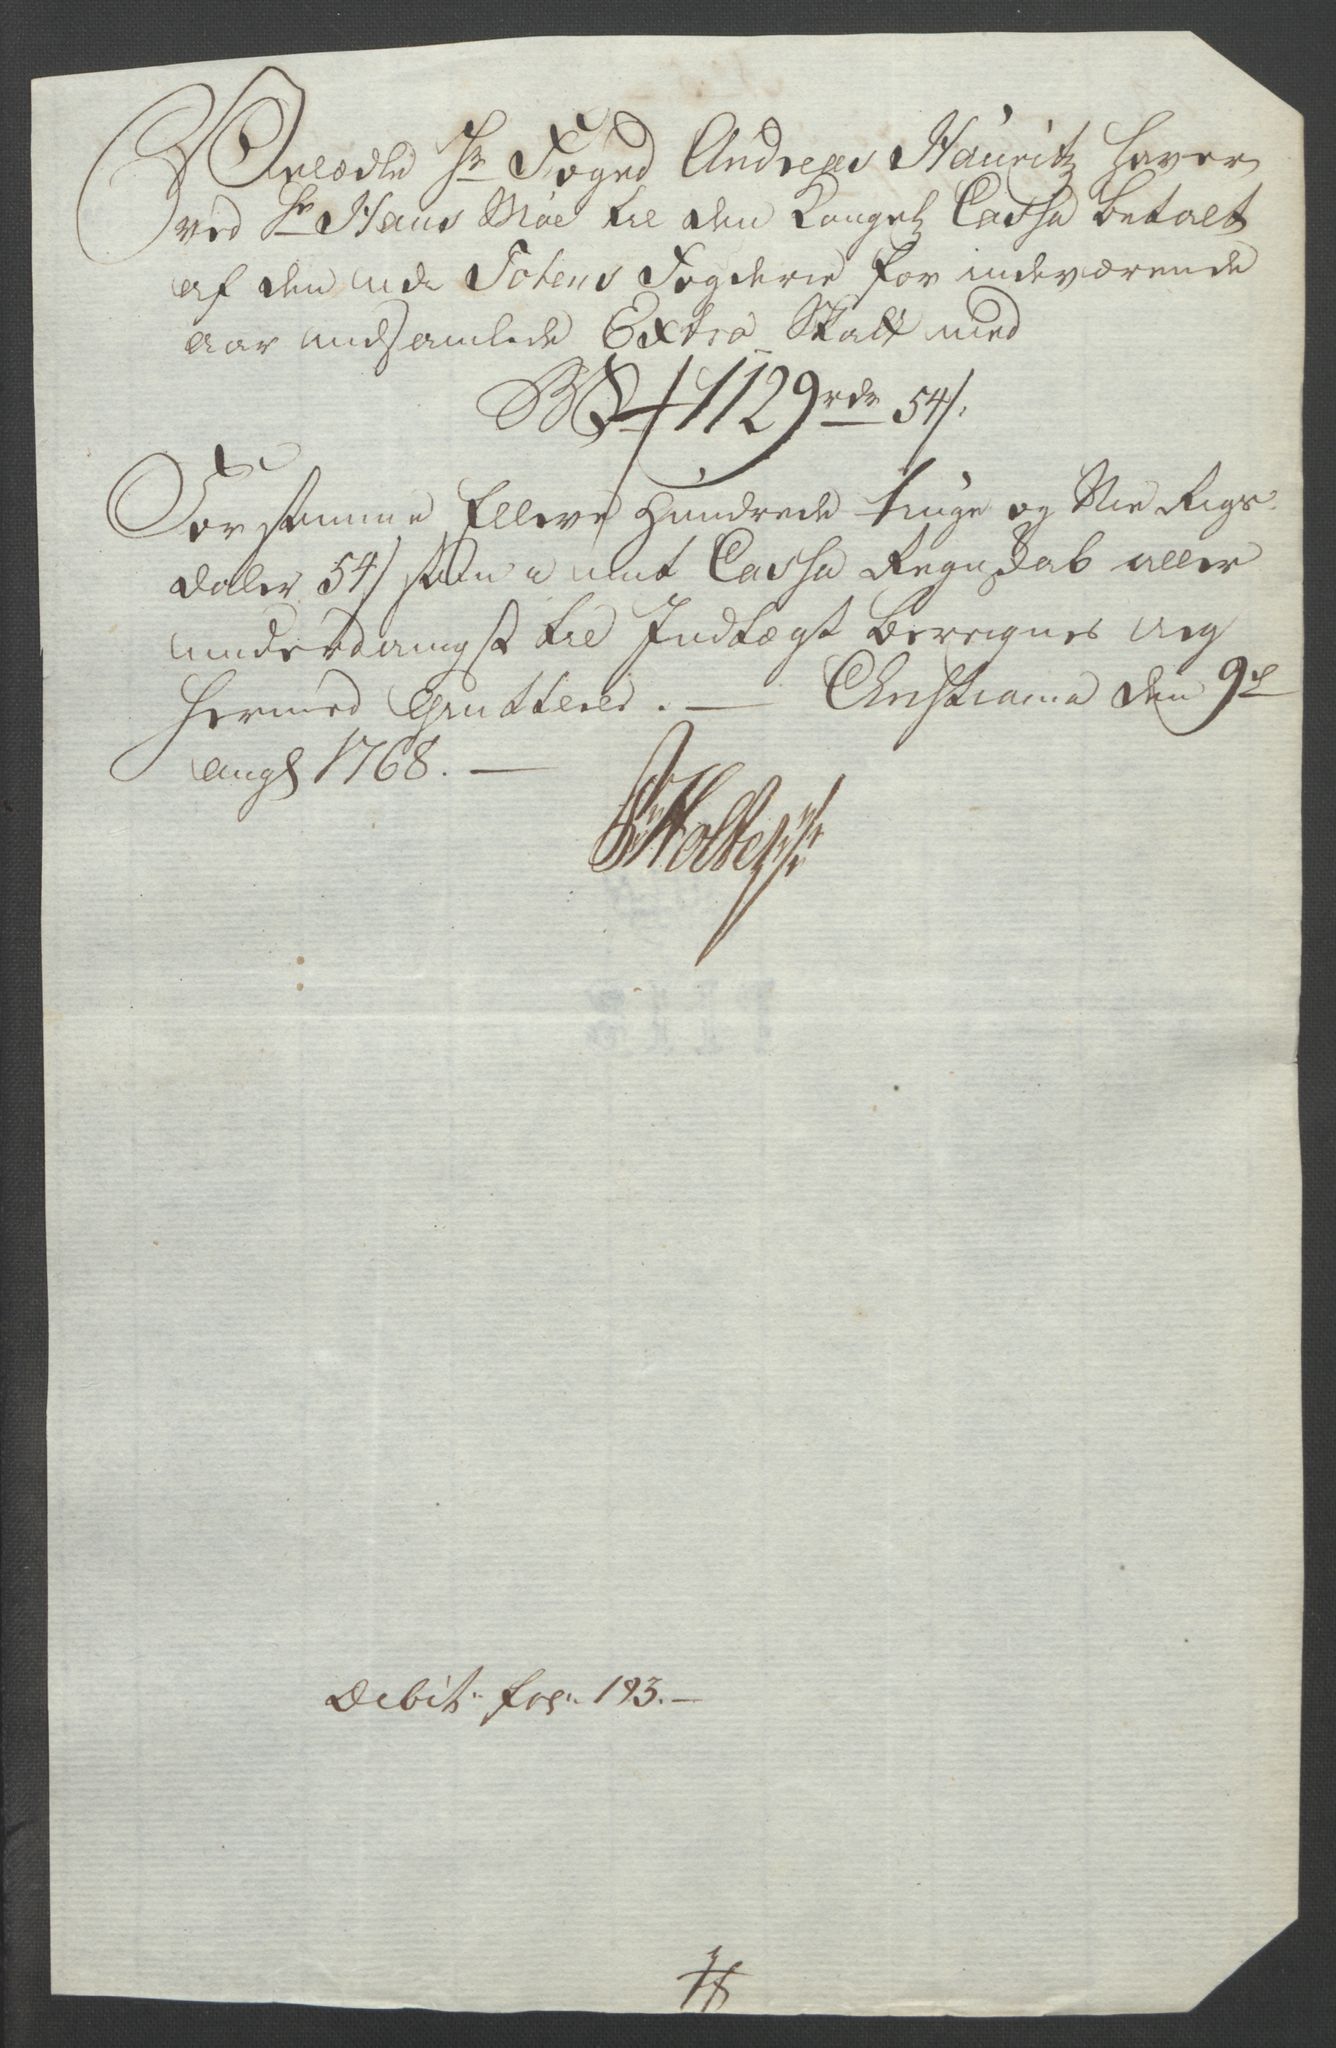 Velædle Hr Foged Andreas Hauritz haver
ved Hr Hans Moe til den Kongel Cassa betalt
af den udi Totens Fogderie for indeværende
aar indsamlede Extra Skatt med
1129 rdr 54 s.
Forstemme Elleve Hundrede tiuge og Nie Rigs-
daler 54 s som i mit Cassa Regnskab aller
underdanigst til Indtægt beregnes ieg
hermed qvitterer. — Christiania den 9de
Aug 1768. —
Holter
Debit: fol: 193. —